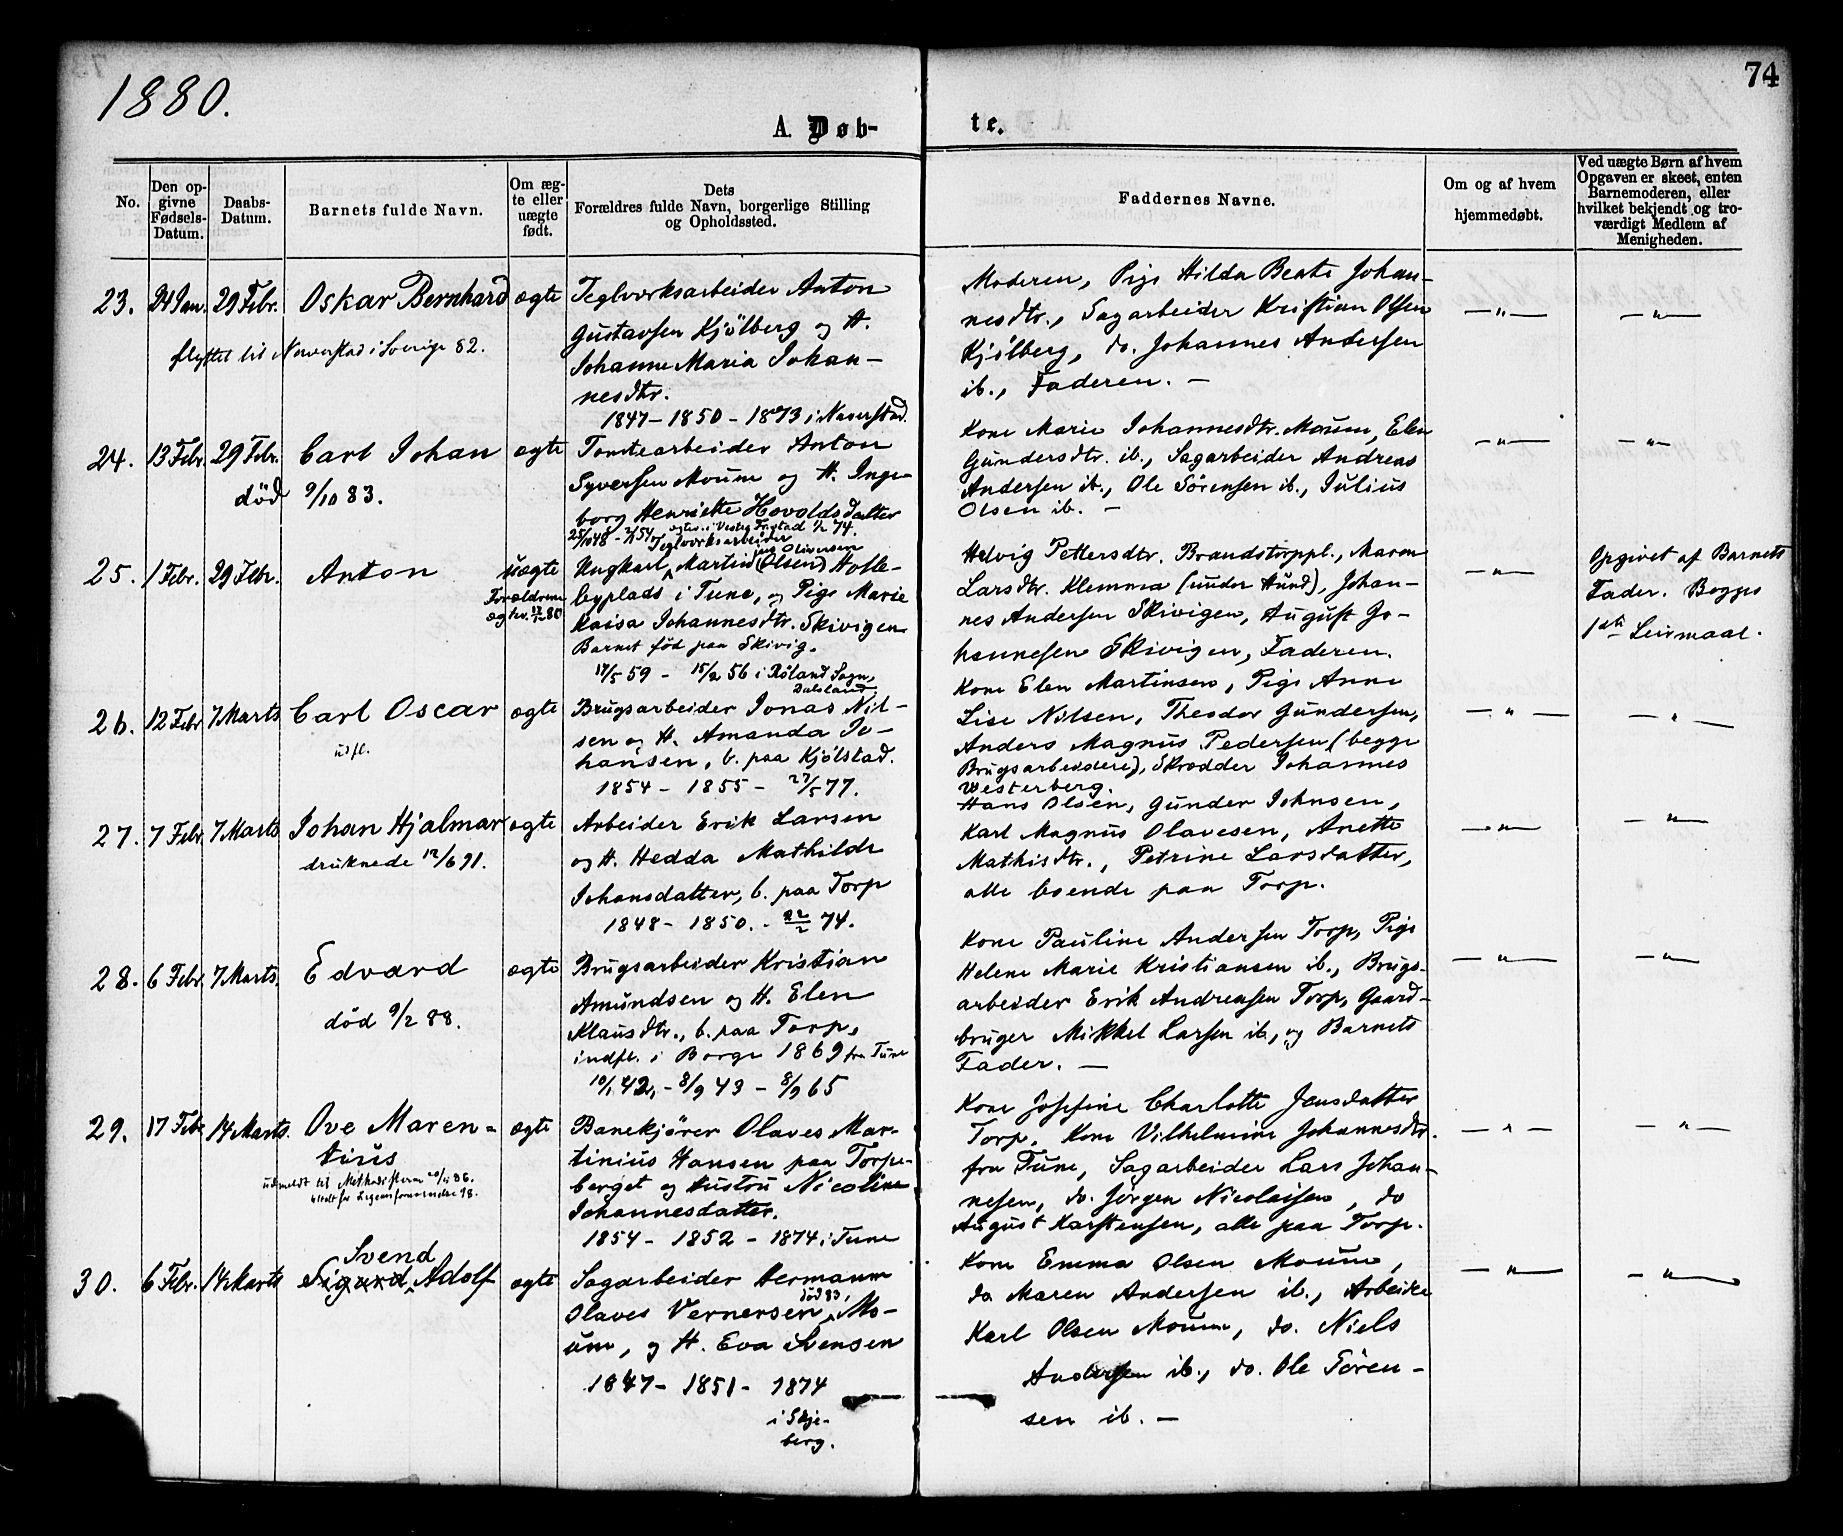 74
1880.
A. Døb-
te.
No.
Den op-
givne
Fødsels-
Datum.
Daabs-
Datum.
Barnets fulde Navn.
Om æg-
te eller
uægte
født.
Dets
Forældres fulde Navn, borgerlige Stilling
og Opholdssted.
Faddernes Navne.
Om og af hvem
hjemmedøbt.
Ved uægte Børn af hvem
Opgaven er skeet, enten
Barnemoderen, eller
hvilket bekjendt og tro-
værdigt Medlem af
Menigheden.
23. 24 Jan. 29 Febr. Oskar Bernhard ægte
flyttet til Naverstad i Sverige 82.
Teglværksarbeider Anton
Gustavsen Kjölberg og H.
Johanne Maria Johan-
nesdtr.
1847 - 1850 - 1873 i Naverstad.
Moderen, Pige Hilda Beate Johan-
nesdtr., Sagarbeider Kristian Olsen
Kjölberg, do. Johannes Andersen
ib., Faderen. -
-"- -"-
24. 13 Febr. 29 Febr. Carl Johan ægte
död 9/10 83.
Tomtearbeider Anton
Syversen Moum og H. Inge-
borg Henriette Hovoldsdatter
25/10 48 - 54 Fr.stad 74.
Kone Marie Johannesdtr. Moum, Elen
Gundersdtr. ib., Sagarbeider Andreas
Andersen ib., Ole Sörensen ib., Julius
Olsen ib. -
-"- -"-
25. 1 Febr. 29 Febr. Anton uægte
Forældrene
ægtev. 80
Teglværksarbeider
Ungkarl Martin (Olsen) Holle-
byplads i Tune, og Pige Marie
Kaisa Johannesdtr. Skivigen
Barnet föd paa Skivig.
17/5 59 - 15/2 56 i Röland Sogn,
Dalsland
Helvig Pettersdtr. Brandstorppl., Maren
Larsdtr. Klemma (under Hund), Johan-
nes Andersen Skivigen, August Jo-
hannesen Skivigen, Faderen.
-"-
Opgivet af Barnets
Fader. Begges
1ste Leiermaal.
26. 12 Febr. 7 Marts Carl Oscar ægte
udfl.
Brugsarbeider Jonas Nil-
sen og H. Amanda Jo-
hansen, b. paa Kjölstad.
1854 - 1855 - 27/5 77.
Kone Elen Martinsen, Pige Anne
Lise Nilsen, Theodor Gundersen,
Anders Magnus Pedersen (begge
Brugsarbeidere), Skrædder Johannes
Westerberg.
-"- -"-
27. 7 Febr. 7 Marts Johan Hjalmar ægte
druknede 12/6 91.
Arbeider Erik Larsen
og H. Hedda Mathilde
Johansdatter, b. paa Torp
1848 - 1850. - 22/2 74.
Hans Olsen, Gunder Johnsen,
Karl Magnus Olavesen, Anette
Mathisdtr., Petrine Larsdatter,
alle boende paa Torp.
-"- -"-
28. 6 Febr. 7 Marts. Edvard ægte
död 9/2 88.
Brugsarbeider Kristian
Amundsen og H. Elen
Klausdtr., b. paa Torp,
indfl. i Borge 1869 fra Tune
10/1 42, - 8/9 43 - 8/9 65
Kone Pauline Andersen Torp, Pige
Helene Marie Kristiansen ib., Brugs-
arbeider Erik Andreasen Torp, Gaard-
bruger Mikkel Larsen ib., og Barnets
Fader. -
-"- -"-
29. 17 Febr. 14 Marts. Ove Maren-
tius ægte
udmeldt til Methodisterne 86.
98.
Banekjörer Olaves Mar-
tinius Hansen paa Torpe-
berget og Hustru Nicoline
Johannesdatter.
1854 - 1852 - 1874 i Tune
Kone Josefine Charlotte Jensdatter
Torp, Kone Vilhelmine Johannesdtr.
fra Tune, Sagarbeider Lars Johan-
nesen, do. Jörgen Nicolaisen, do
August Karstensen, alle paa Torp.
-"- -"-
30. 6 Febr. 14 Marts Svend
Sigurd Adolf ægte
Sagarbeider Hermann
Olaves Vernersen död 83, Mo-
um, og H. Eva Svensen
1847 - 1851 - 1874
i Skje-
berg.
Kone Emma Olsen Moum,
do Maren Andersen ib., Arbeider
Karl Olsen Moum, do. Niels
Andersen ib., do. Ole Sören-
sen ib. -
-"- -"-